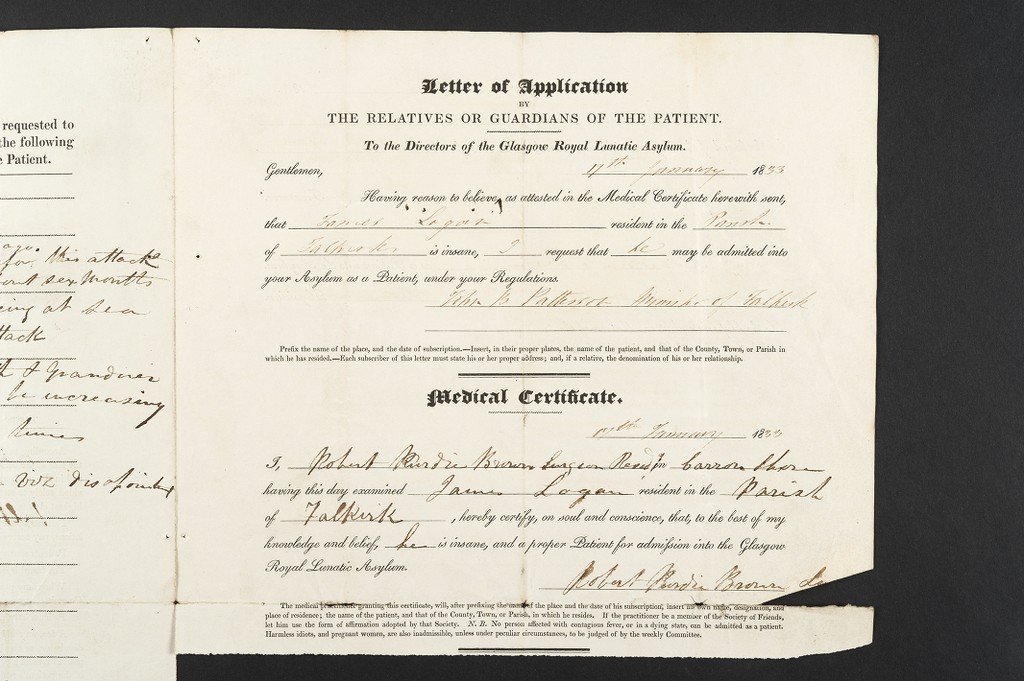 requested to
the following
Patient.
ago.
for this attack
out six months
at sea
attack
& Grandeur
be increasing
times
viz disapointed
Letter of Application
BY
THE RELATIVES OR GUARDIANS OF THE PATIENT.
To the Directors of the Glasgow Royal Lunatic Asylum.
Gentlemen, 17th January 1833
Having reason to believe, as attested in the Medical Certificate herewith sent,
that James Logan resident in the Parish
of Falkirk is insane, I request that he may be admitted into
your Asylum as a Patient, under your Regulations.
John B Patterson Minister of Falkirk
Prefix the name of the place, and the date of subscription.—Insert, in their proper places, the name of the patient, and that of the County, Town, or Parish in
which he has resided.—Each subscriber of this letter must state his or her proper address; and, if a relative, the denomination of his or her relationship.
Medical Certificate.
17th January 1833
I, Robert Purdie Brown Surgeon Resid in Carron Shore
having this day examined James Logan resident in the Parish
of Falkirk, hereby certify, on soul and conscience, that, to the best of my
knowledge and belief, he is insane, and a proper Patient for admission into the Glasgow
Royal Lunatic Asylum.
Robert Purdie Brown
The medical granting this certificate, will, after prefixing the name of the place and the date of his subscription, insert his own name, designation, and
place of residence; the name of the patient, and that of the County, Town, or Parish, in which he resides. If the practitioner be a member of the Society of Friends,
let him use the form of affirmation adopted by that Society. N. B. No person affected with contagious fever, or in a dying state, can be admitted as a patient.
Harmless idiots, and pregnant women, are also inadmissible, unless under peculiar circumstances, to be judged of by the weekly Committee.